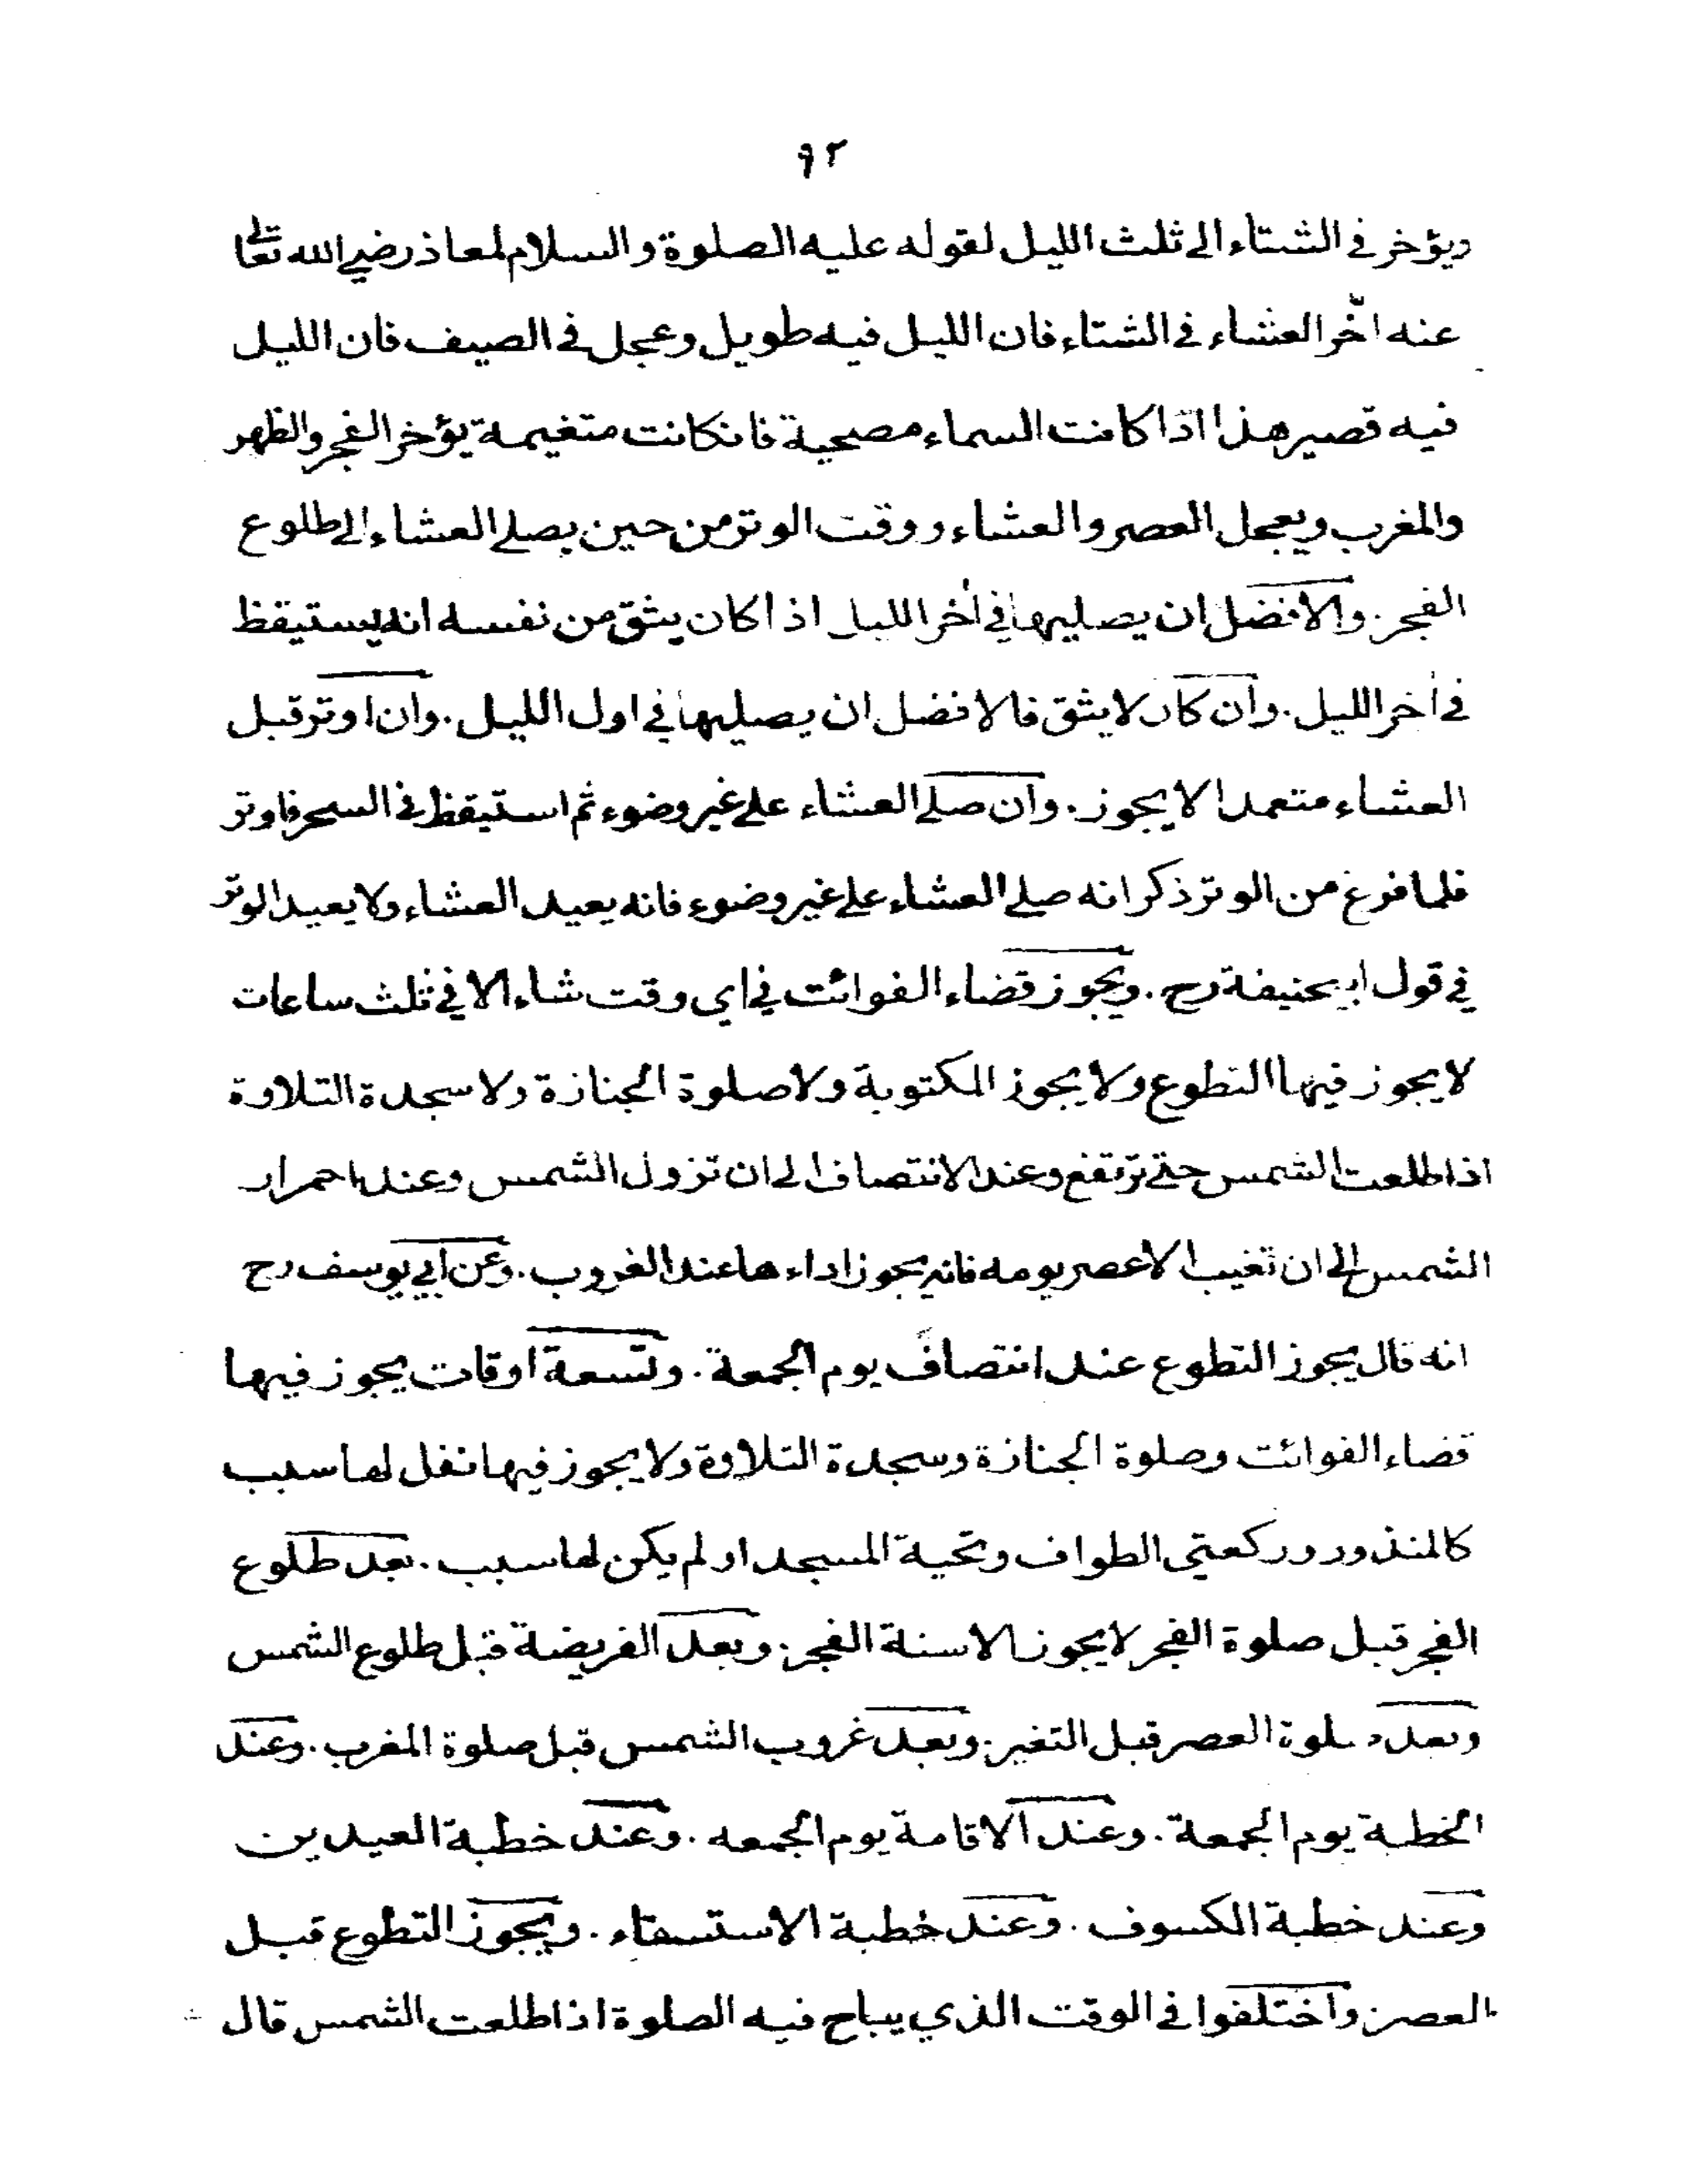 ٩٢
ويؤخر في الشتاء الى ثلث الليل لقوله عليه الصلوة والسلام لمعاذ رضي الله تعالى
عنه اخّر العشاء في الشتاء فان الليل فيه طويل وعجل في الصيف فان الليل
فيه قصير هذا اذا كانت السماء مصحية فانكانت متغيمة يؤخر الفجر والظهر
والمغرب ويعجل العصر والعشاء ووقت الوتر من حين يصلي العشاء الى طلوع
الفجر. والافضل ان يصليها في اخر الليل اذا كان يثق من نفسه انه يستيقظ
في اخر الليل. وان كان لا يثق فالافضل ان يصليها في اول الليل. وان اوتر قبل
العشاء متعمدا لا يجوز. وان صلى العشاء على غير وضوء ثم استيقظ في السحر فاوتر
فلما فرغ من الوتر ذكر انه صلى العشاء على غير وضوء فانه يعيد العشاء ولا يعيد الوتر
في قول ابيحنيفة رح. ويجوز قضاء الفوائت في اي وقت شاء الا في ثلث ساعات
لا يجوز فيها التطوع ولا يجوز المكتوبة ولا صلوة الجنازة ولا سجدة التلاوة
اذا طلعت الشمس حتى ترتفع وعند الانتصاف الى ان تزول الشمس وعند احمرار
الشمس الى ان تغيب الا عصر يومه فانه يجوز اداءها عند الغروب. وعن ابي يوسف رح
انه قال يجوز التطوع عند انتصاف يوم الجمعة. وتسعة اوقات يجوز فيها
قضاء الفوائت وصلوة الجنازة وسجدة التلاوة ولا يجوز فيها نفل لها سبب
كالمنذور وركعتي الطواف وتحية المسجد او لم يكن لها سبب. بعد طلوع
الفجر قبل صلوة الفجر لا يجوز الا سنة الفجر. وبعد الفريضة قبل طلوع الشمس
وبعد صلوة العصر قبل التغير. وبعد غروب الشمس قبل صلوة المغرب. وعند
الخطبة يوم الجمعة. وعند الاقامة يوم الجمعه. وعند خطبة العيدين
وعند خطبة الكسوف. وعند خطبة الاستسقاء. ويجوز التطوع قبل
العصر. واختلفوا في الوقت الذي يباح فيه الصلوة اذا طلعت الشمس قال